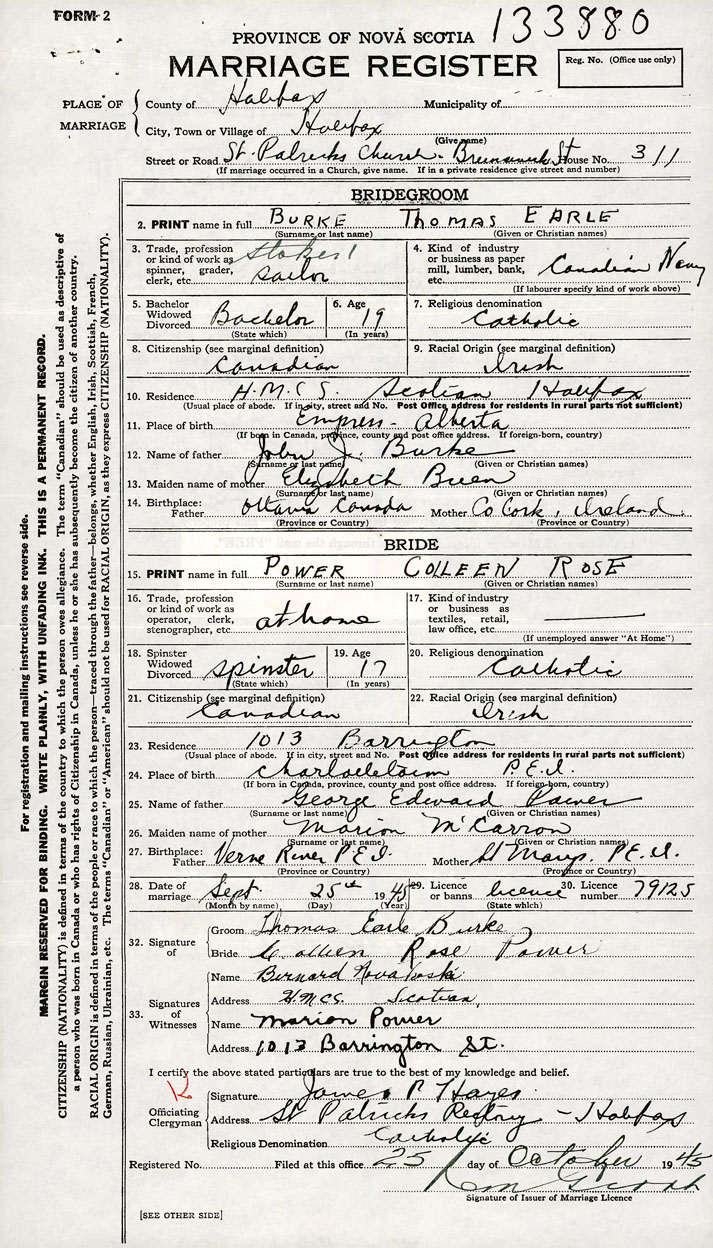 FORM-2
133880
PROVINCE OF NOVA SCOTIA
MARRIAGE REGISTER
Reg. No. (Office use only)
PLACE OF MARRIAGE
County of Halifax Municipality of
City, Town or Village of Halifax
(Give name)
Street or Road St. Patricks Church - Brunswick St House No. 311
(If marriage occurred in a Church, give name. If in a private residence give street and number)
BRIDEGROOM
2. PRINT name in full BURKE THOMAS EARLE
(Surname or last name) (Given or Christian names)
3. Trade, profession or kind of work as spinner, grader, clerk, etc. Stoker 1 sailor
4. Kind of industry or business as paper mill, lumber, bank, etc. Canadian Navy
(If labourer specify kind of work above)
5. Bachelor Widowed Divorced Bachelor
(State which)
6. Age 19
(In years)
7. Religious denomination
Catholic
8. Citizenship (see marginal definition)
Canadian
9. Racial Origin (see marginal definition)
Irish
10. Residence H.M.C.S. Scotian Halifax
(Usual place of abode. If in city, street and No. Post Office address for residents in rural parts not sufficient)
11. Place of birth Empress - Alberta
(If born in Canada, province, county and post office address. If foreign-born, country)
12. Name of father John J. Burke
(Surname or last name) (Given or Christian names)
13. Maiden name of mother Elizabeth
(Surname or last name) (Given or Christian names)
14. Birthplace: Father Ottawa Canada Mother Co Cork, Ireland.
(Province or Country) (Province or Country)
BRIDE
15. PRINT name in full POWER COLLEEN ROSE
(Surname or last name) (Given or Christian names)
16. Trade, profession or kind of work as operator, clerk, stenographer, etc. at home
17. Kind of industry or business as textiles, retail, law office, etc.
(If unemployed answer "At Home")
18. Spinster Widowed Divorced spinster
(State which)
19. Age 17
(In years)
20. Religious denomination
Catholic
21. Citizenship (see marginal definition)
Canadian
22. Racial Origin (see marginal definition)
Irish
23. Residence 1013 Barrington
(Usual place of abode. If in city, street and No. Post Office address for residents in rural parts not sufficient)
24. Place of birth Charlottetown P.E.I.
(If born in Canada, province, county and post office address. If foreign-born, country)
25. Name of father George Edward Power
(Surname or last name) (Given or Christian names)
26. Maiden name of mother Marion McCarron
(Surname or last name) (Given or Christian names)
27. Birthplace: Father Verne River P.E.I. Mother St Marys. P.E.I.
(Province or Country) (Province or Country)
28. Date of marriage Sept. 25th 1945
(Month by name) (Day) (Year)
29. Licence or banns licence
(State which)
30. Licence number 79125
32. Signature of
Groom Thomas Earle Burke
Bride Colleen Rose Power
33. Signatures of Witnesses
Name Bernard
Address HMCS. Scotian,
Name Marion Power
Address 1013 Barrington St.
I certify the above stated particulars are true to the best of my knowledge and belief.
Officiating Clergyman
Signature James P Hayes
Address St Patricks Rectory - Halifax
Religious Denomination Catholic
Registered No. Filed at this office 25 day of October 1945
Signature of Issuer of Marriage Licence
[SEE OTHER SIDE]
For registration and mailing instructions see reverse side.
MARGIN RESERVED FOR BINDING. WRITE PLAINLY, WITH UNFADING INK. THIS IS A PERMANENT RECORD.
CITIZENSHIP (NATIONALITY) is defined in terms of the country to which the person owes allegiance. The term "Canadian" should be used as descriptive of
a person who was born in Canada or who has rights of Citizenship in Canada, unless he or she has subsequently become the citizen of another country.
RACIAL ORIGIN is defined in terms of the people or race to which the person—traced through the father—belongs, whether English, Irish, Scottish, French,
German, Russian, Ukrainian, etc. The terms "Canadian" or "American" should not be used for RACIAL ORIGIN, as they express CITIZENSHIP (NATIONALITY).